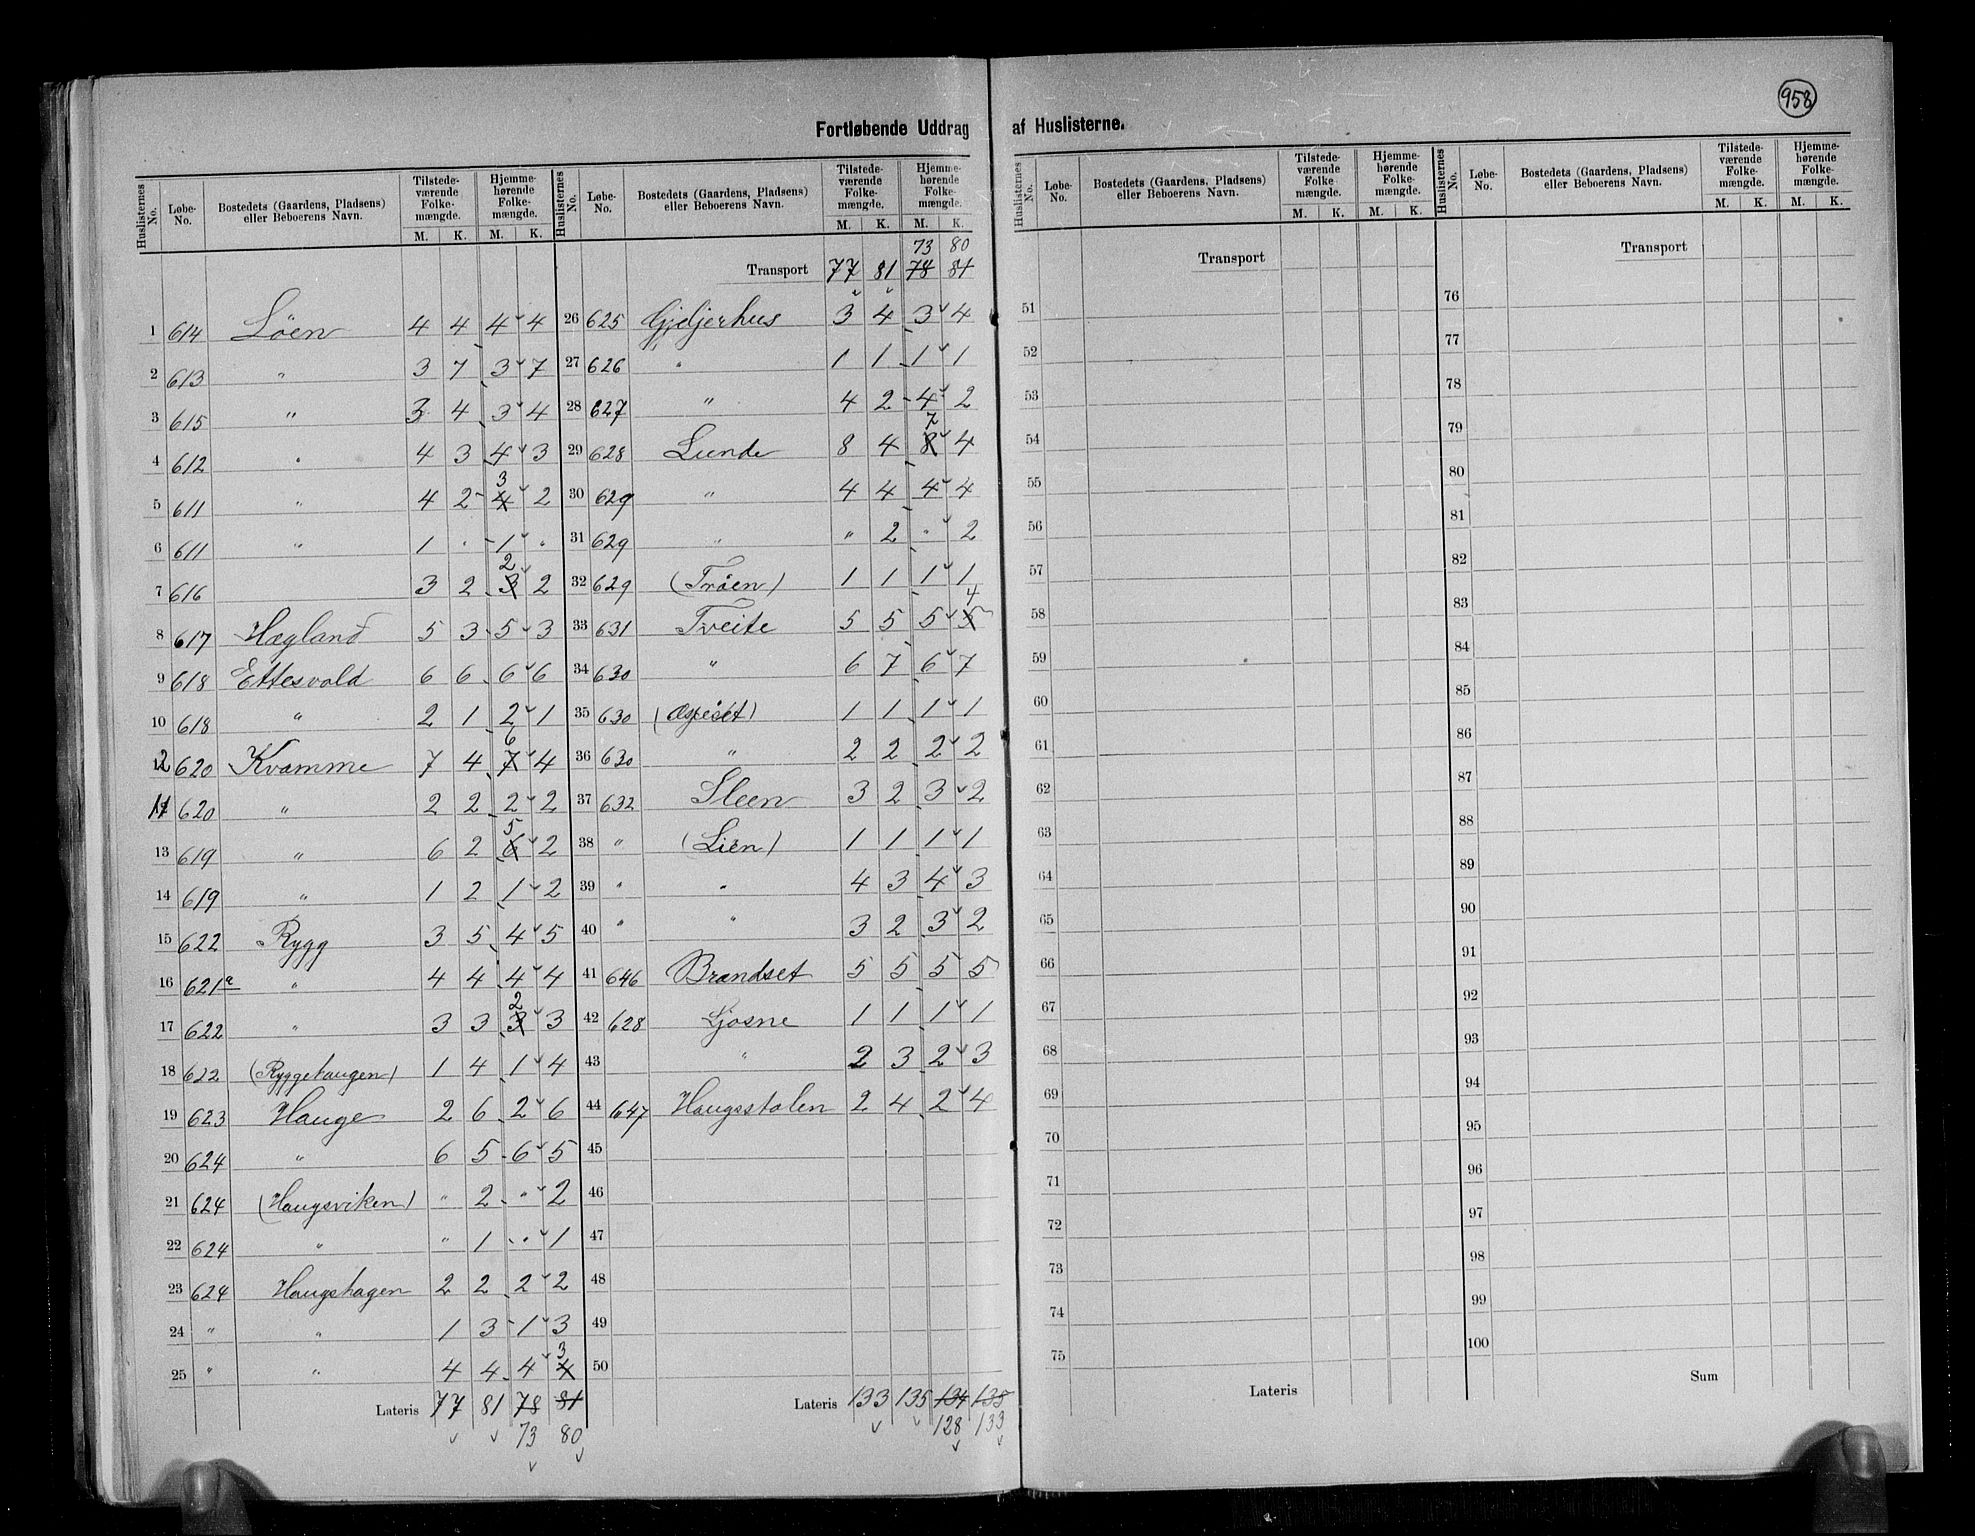 958
Fortløbende Uddrag af Huslisterne.
Huslisternes No. Løbe-No. Bostedets (Gaardens, Pladsens) eller Beboerens Navn. Tilstedeværende Folkemængde. M. K. Hjemmehørende Folkemængde. M. K.
1 614 Löen 4 4 4 4
2 613 " 3 7 3 7
3 615 " 3 4 3 4
4 612 " 4 3 4 3
5 611 " 4 2 4 3 2
6 611 " 1 " 1 "
7 616 3 2 3 2 2
8 617 Hægland 5 3 5 3
9 618 Ettesvold 6 6 6 6
10 618 " 2 1 2 1
12 620 Kvamme 7 4 7 6 4
11 620 " 2 2 2 2
13 619 " 6 2 6 5 2
14 619 " 1 2 1 2
15 622 Rygg 3 5 4 5
16 621a " 4 4 4 4
17 622 " 3 3 3 2 3
18 622 (Ryggehaugen) 1 4 1 4
19 623 Hauge 2 6 2 6
20 624 " 6 5 6 5
21 624 (Haugsviken) " 2 " 2
22 624 " " 1 " 1
23 624 Haugshagen 2 2 2 2
24 " " 1 3 1 3
25 " " 4 4 4 4 3
Lateris 77 81 78 81
73 80
Huslisternes No. Løbe-No. Bostedets (Gaardens, Pladsens) eller Beboerens Navn. Tilstedeværende Folkemængde. M. K. Hjemmehørende Folkemængde. M. K.
73 80
Transport 77 81 78 81
26 625 Gjeljerhus 3 4 3 4
27 626 " 1 1 1 1
28 627 " 4 2 4 2
29 628 Lunde 8 4 8 7 4
30 629 " 4 4 4 4
31 629 " " 2 " 2
32 629 (Tröen) 1 1 1 1
33 631 Tveite 5 5 5 5 4
34 630 " 6 7 6 7
35 630 (Œspesèt) 1 1 1 1
36 630 " 2 2 2 2
37 632 Sleen 3 2 3 2
38 " (Lien) 1 1 1 1
39 " " 4 3 4 3
40 " " 3 2 3 2
41 646 Brandset 5 5 5 5
42 628 Ljosne 1 1 1 1
43 " 2 3 2 3
44 647 Haugsstölen 2 4 2 4
45
46
47
48
49
50
Lateris 133 135 134 135
128 133
Huslisternes No. Løbe-No. Bostedets (Gaardens, Pladsens) eller Beboerens Navn. Tilstedeværende Folkemængde. M. K. Hjemmehørende Folkemængde. M. K.
Transport
51
52
53
54
55
56
57
58
59
60
61
62
63
64
65
66
67
68
69
70
71
72
73
74
75
Lateris
Huslisternes No. Løbe-No. Bostedets (Gaardens, Pladsens) eller Beboerens Navn. Tilstedeværende Folkemængde. M. K. Hjemmehørende Folkemængde. M. K.
Transport
76
77
78
79
80
81
82
83
84
85
86
87
88
89
90
91
92
93
94
95
96
97
98
99
100
Sum